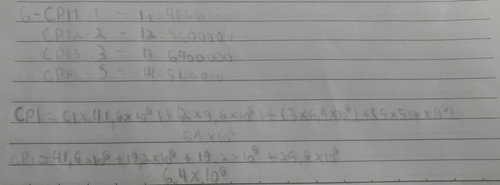 6-CPI1 1 - 11:41600000
CPI2 - 2 - 12:9600000
CPI3 3 - 13 6400000
CPI4: 5 - 14:5120000
CPI = (1x41,6x10⁶)+(2x9,6x10⁶)+(3x6,4x10⁶)+(5x5,12x10⁶)
64x10⁶
CPI = 41,6x10⁶+19,2x10⁶+19,2x10⁶+25,6x10⁶
6,4x10⁶